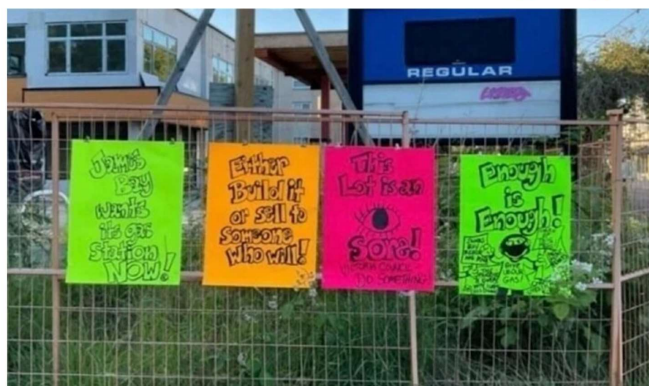 REGULAR
James
Bay
wants
its gas
station
NOW!
Either
Build it
or sell to
someone
who will!
This
Lot is an
Sore!
DO SOMETHING
Enough
is
Enough!
GAS!